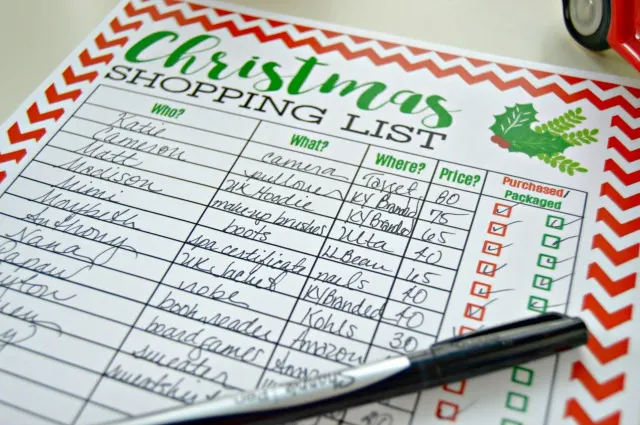 Christmas
SHOPPING LIST
Who? What? Where? Price? Purchased/ Packaged
Katie camera Target 80
Cameron pullover KY Branded 75
Matt UK Hoodie KY Branded 65
Madison make-up brushes Ulta 40
Mimi boots LL Bean
Maribeth spa certificate nails 40
Anthony UK jacket KY Branded 40
Nana robe Kohls 30
book reader Amazon
board games Amazon
sweater